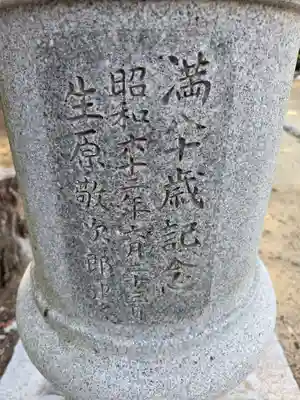 満八十歳記念
昭和六十二年六月二十三日
生原敬次郎